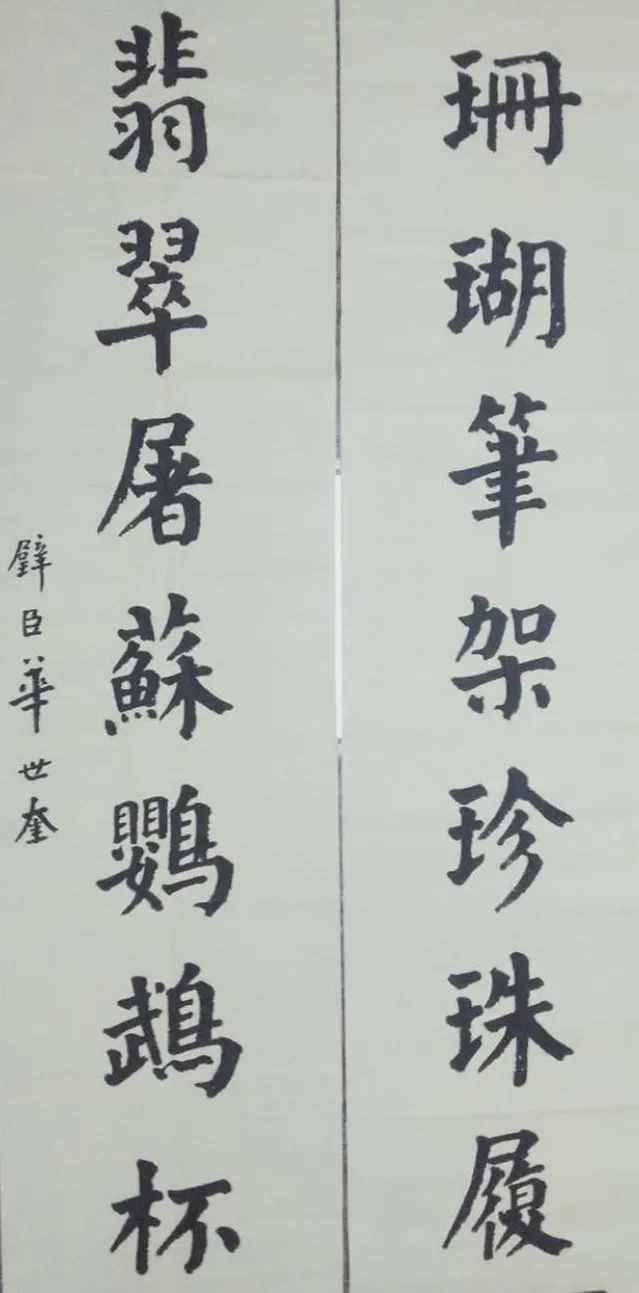 珊瑚筆架珍珠履
翡翠屠蘇鸚鵡杯
璧臣華世奎